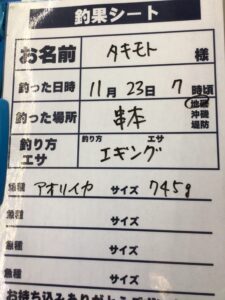 釣果シート
お名前 タキモト 様
釣った日時 11月23日 7時頃
釣った場所 串本 地磯 沖磯 堤防
釣り方 エサ 釣り方 エサ エギング
魚種 アオリイカ サイズ 745g
魚種 サイズ
魚種 サイズ
魚種 サイズ
お持ち込みありがとうござ